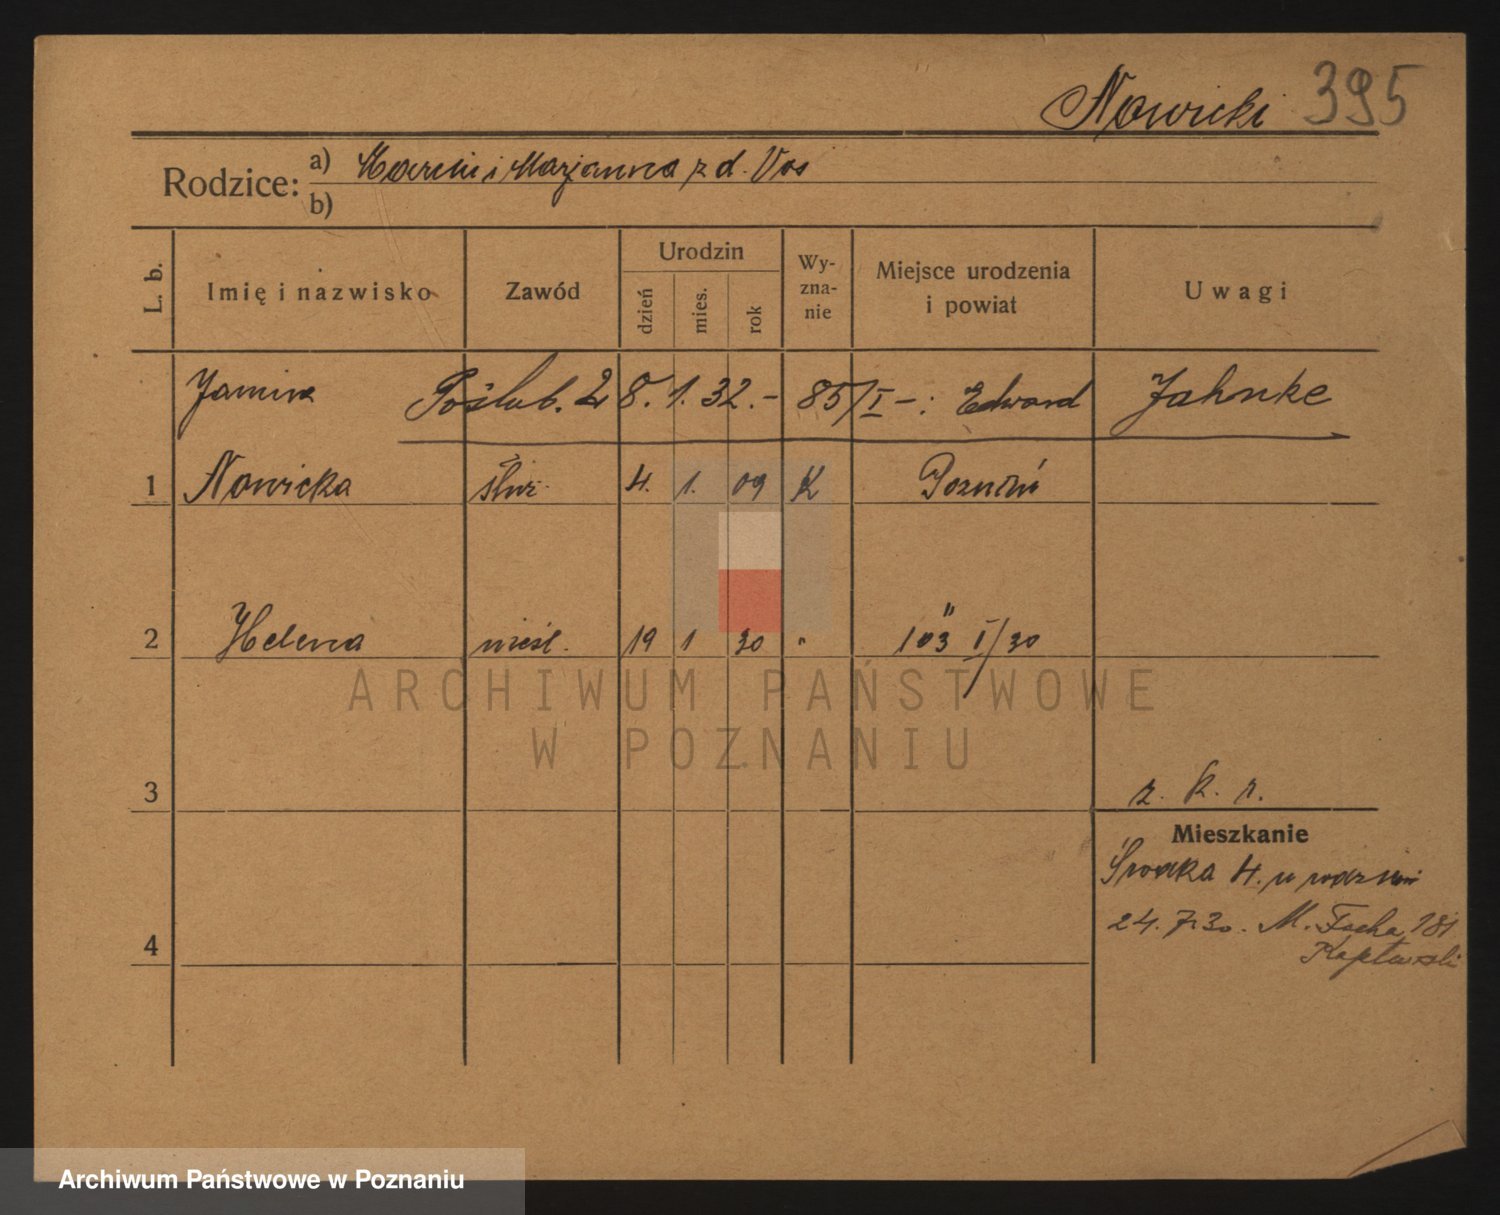 Nowicki 395
Rodzice: a) Marcin i Marjanna z d. Vos
b)
L. b. Imię i nazwisko Zawód Urodzin dzień mies. rok Wy-zna-nie Miejsce urodzenia i powiat Uwagi
Janina Poślub. 28.1.32.- 85/I -: Edward Jahnke
1 Nowicka służ. 4. 1. 09 K Poznań
2 Helena nieśl. 19 1 30 " " 103 I/30
3 z. k. r.
Mieszkanie
Środka 4. u rodziców
24.7.30. M. Focha 181
4
ARCHIWUM PAŃSTWOWE
W POZNANIU
Archiwum Państwowe w Poznaniu